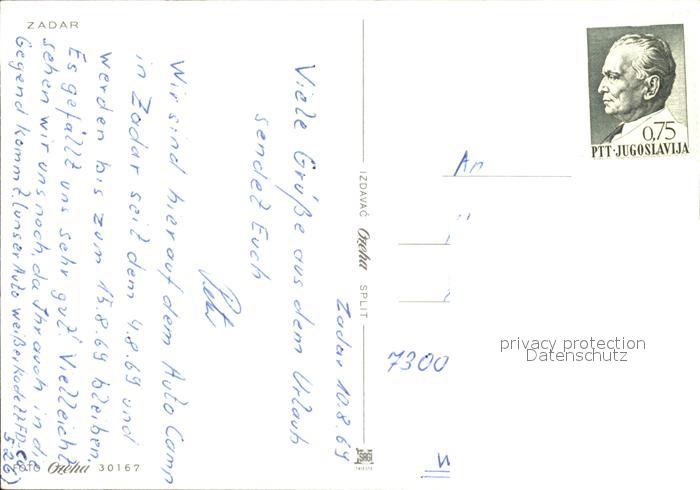 ZADAR
Zadar 10.8.69
Viele Grüße aus dem Urlaub
sendet Euch
Wir sind hier auf dem Auto Camp
in Zadar seit dem 4.8.69 und
werden bis zum 15.8.69 bleiben.
Es gefällt uns sehr gut! Vielleicht
sehen wir uns noch, da Ihr auch in di
Gegend kommt. (unser Auto weißer Kadett FD-
526)
FOTO Ozeha 30167
IZDAVAČ Ozeha SPLIT
0,75
PTT·JUGOSLAVIJA
An
7300
privacy protection
Datenschutz